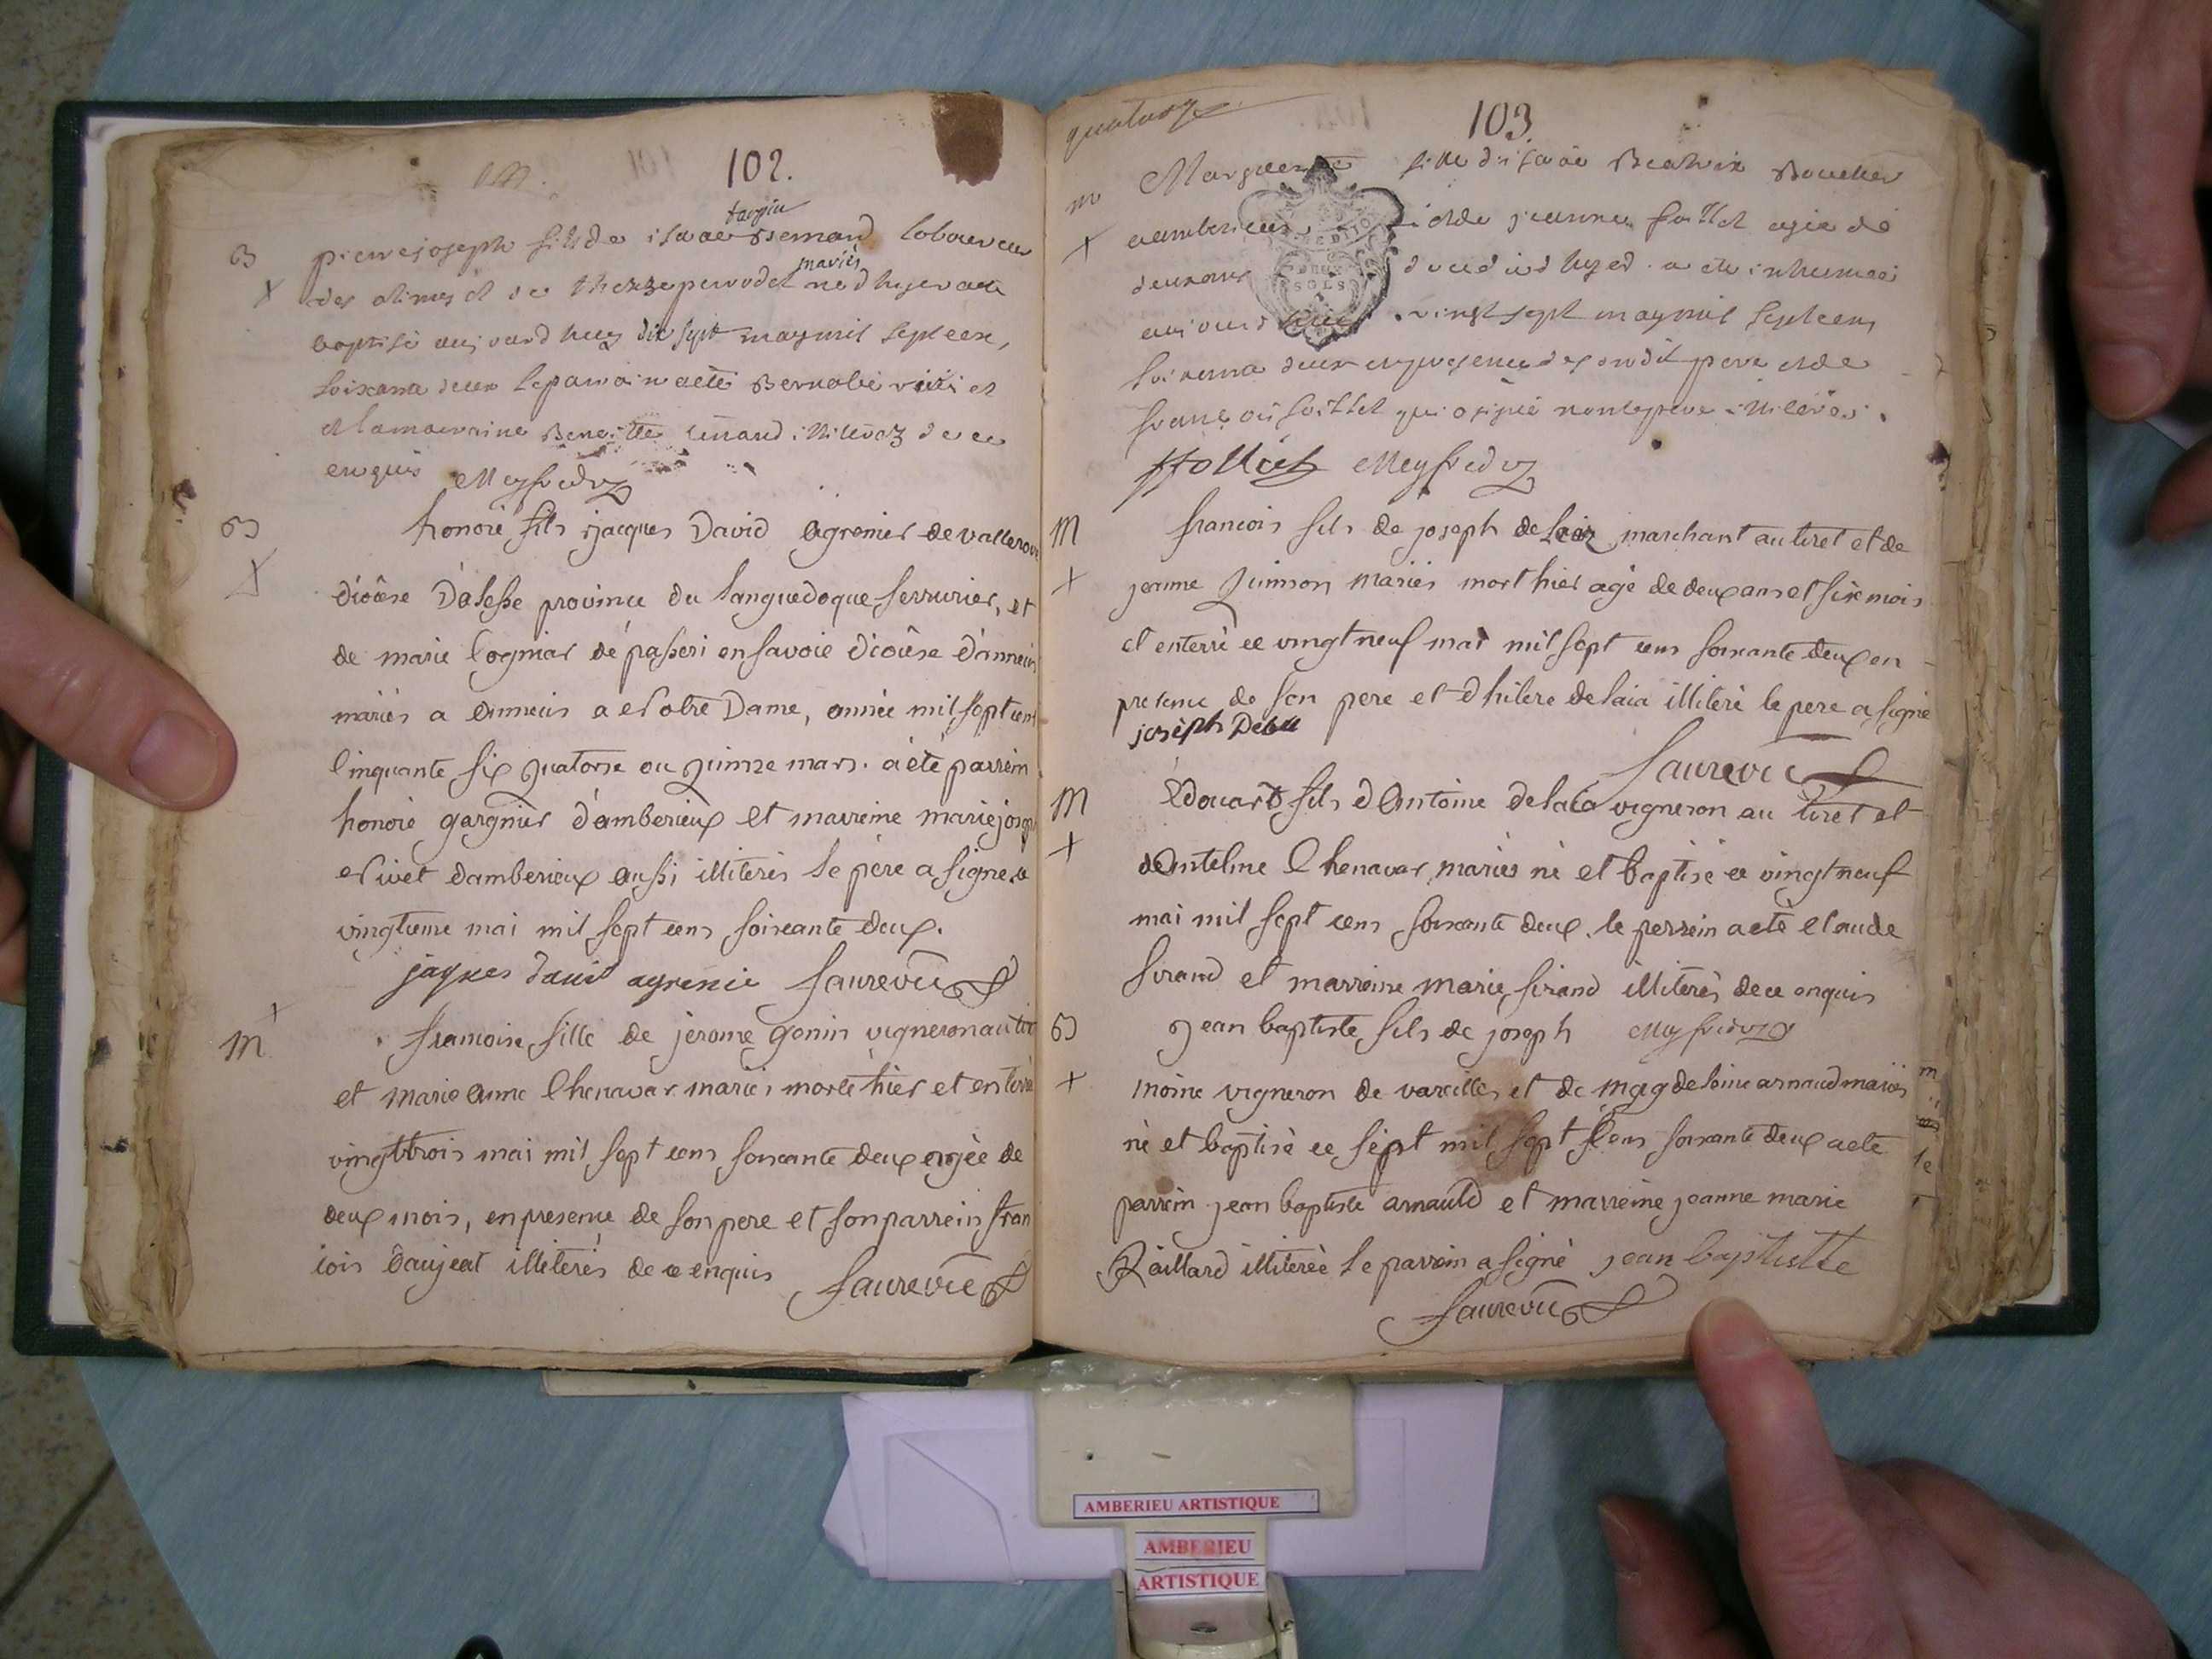 102.
targin
B pierre joseph fils de isaac Bernard laboureur
X des alimes et de mariés né d'hyer a ete
baptisé aujourd huy dix sept may mil sept cens,
soixante deux le parain a eté Bernabé et
et la marraine Benoitte Renaud illiterez de ce
enquis Meyfredy
B honoré fils jacques David Agrenier de vallerou
X dioêse D'alesse province du languedoque serrurier, et
de marie Cogniar dé passeri en savoie dioêse d'anneci
mariés a Annecis a Notre Dame, année mil sept cens
cinquante six quatorse ou quinze mars. a été parrein
honoré gargnier d'amberieux et marreine marie josep
Nivet d'amberieux aussi illiterés le père a signé ce
vingtieme mai mil sept cens soixante deux.
jaques david agrenié faurevie
M + francoise fille de jerome gonin vigneron au tiret
et marie anne Chenavar mariés morte hier et enterré
vingttrois mai mil sept cens soixante deux agée de
deux mois, en presence de son pere et son parrein fran
cois Baujeat illiterés de ce enquis faurevie
quatorze
103.
m Marguerite fille d'isaac Beatrix Boucher
X amberieux et de jeanne follet agée de
deux ans decedée d'hyer a ete inhumée
aujourd huy vingt sept may mil sept cens
soixante deux en presence de son dit pere et de
francois follet qui a signé non le pere illiteré.
ffolliet Meyfredy
DEUX
SOLS
M francois fils de joseph de laia marchant au tiret et de
+ jeanne quinson mariés mort hier agé de deux ans et sixe mois
et enterré ce vingt neuf mai mil sept cens soixante deux en
presence de son pere et d hilere de laia illiteré le pere a signé
joseph
faurevie
M Edouard fils d Antoine delaia vigneron au tiret et
+ d'Anteline Chenavar, mariés né et baptisé ce vingt neuf
mai mil sept cens soixante deux. le perrein a eté Claude
sirand et marreine marie sirand illiterés de ce enquis
B jean baptiste fils de joseph Meyfredy
+ moine vigneron de vareilles et de magdeleine arnaud mariés
né et baptisé ce sept mil sept Cens soixante deux a eté
parrein jean baptiste arnauld et marreine jeanne marie
Raillard illiterée le parrein a signé jean baptistte
faurevie
AMBERIEU ARTISTIQUE
AMBERIEU
ARTISTIQUE